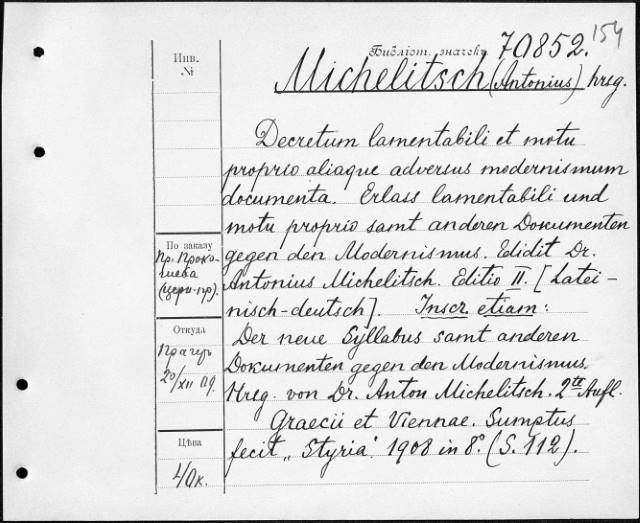 154
Библіот. значекъ 7A852.
Инв.
№
Michelitsch (Antonius) hrsg.
Decretum lamentabili et motu
proprio aliaque adversus modernismum
documenta. Erlass lamentabili und
motu proprio samt anderen Dokumenten
gegen den Modernismus. Edidit Dr.
Antonius Michelitsch. Editio II. [Latei-
nisch-deutsch]. Inscr. etiam:
Der neue Syllabus samt anderen
Dokumenten gegen den Modernismus.
Hrsg. von Dr. Anton Michelitsch. 2te Aufl.
Graecii et Viennae. Sumptus
fecit „Styria". 1908 in 8°. (S. 112).
По заказу
Пр. Проко-
шева
(церк-пр).
Откуда
Прагеръ
20/XII 09.
Цѣна